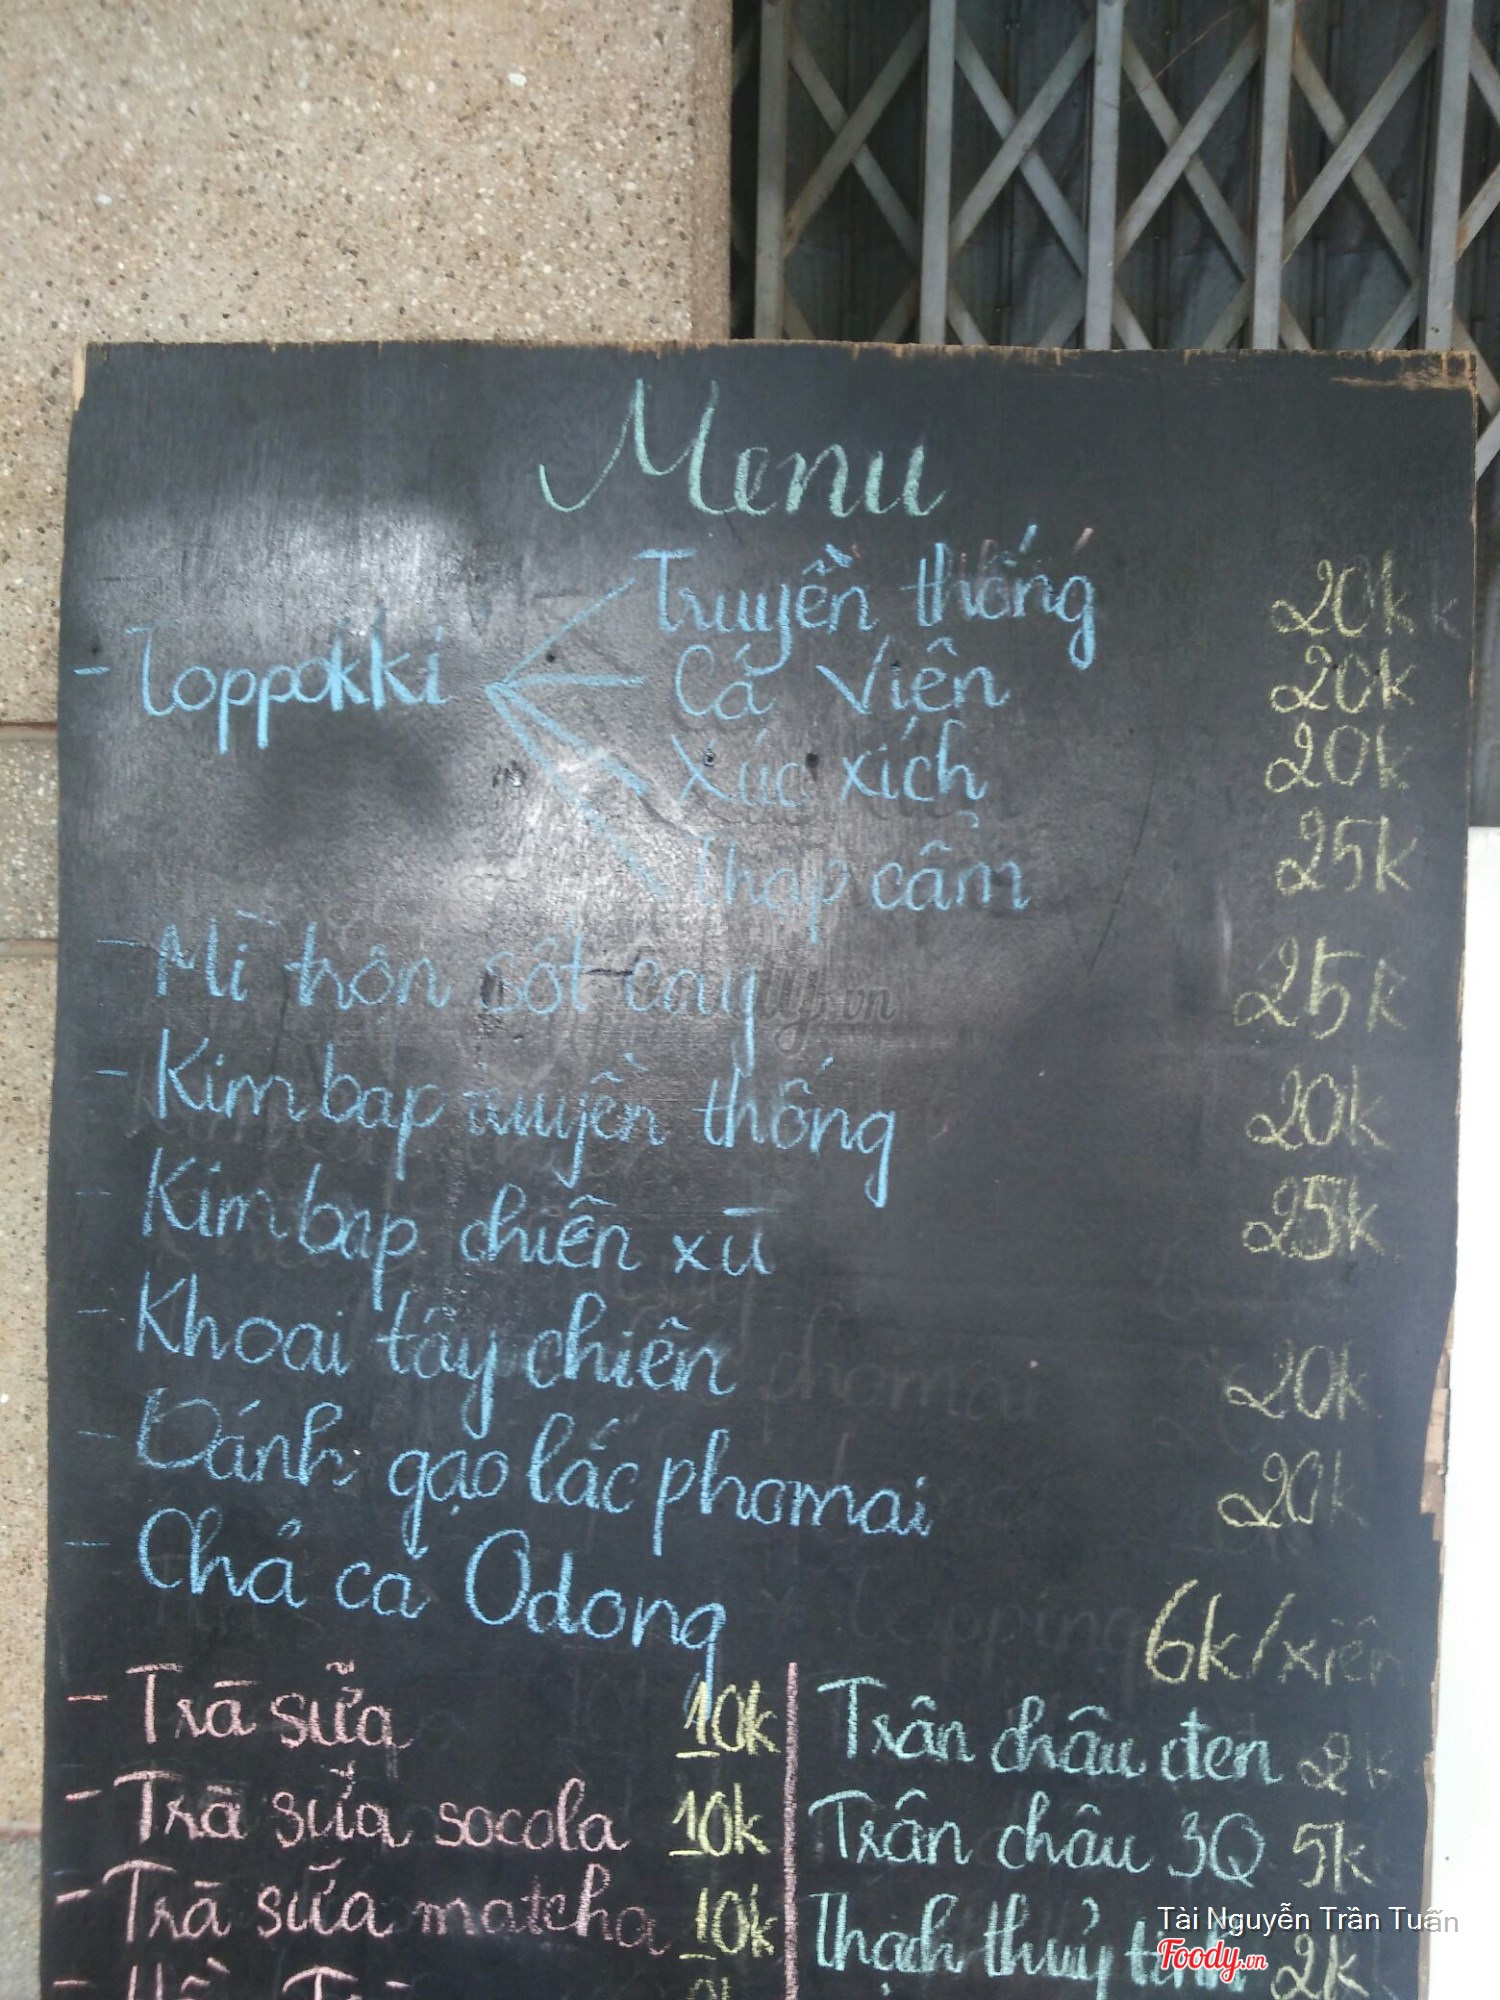 Menu
Truyền thống 20k
- Toppokki Cá Viên 20k
Xúc xích 20k
Thập cẩm 25k
- Mì trộn sốt cay 25k
- Kimbap truyền thống 20k
- Kimbap chiên xù 25k
- Khoai tây chiên 20k
- Bánh gạo lắc phomai 20k
- Chả cá Odong 6k/xiên
- Trà sữa 10k
Trân châu đen 2k
- Trà sữa socola 10k
Trân châu 3Q 5k
- Trà sữa matcha 10k
Thạch thủy tinh 2k
Tài Nguyễn Trần Tuấn
Foody.vn